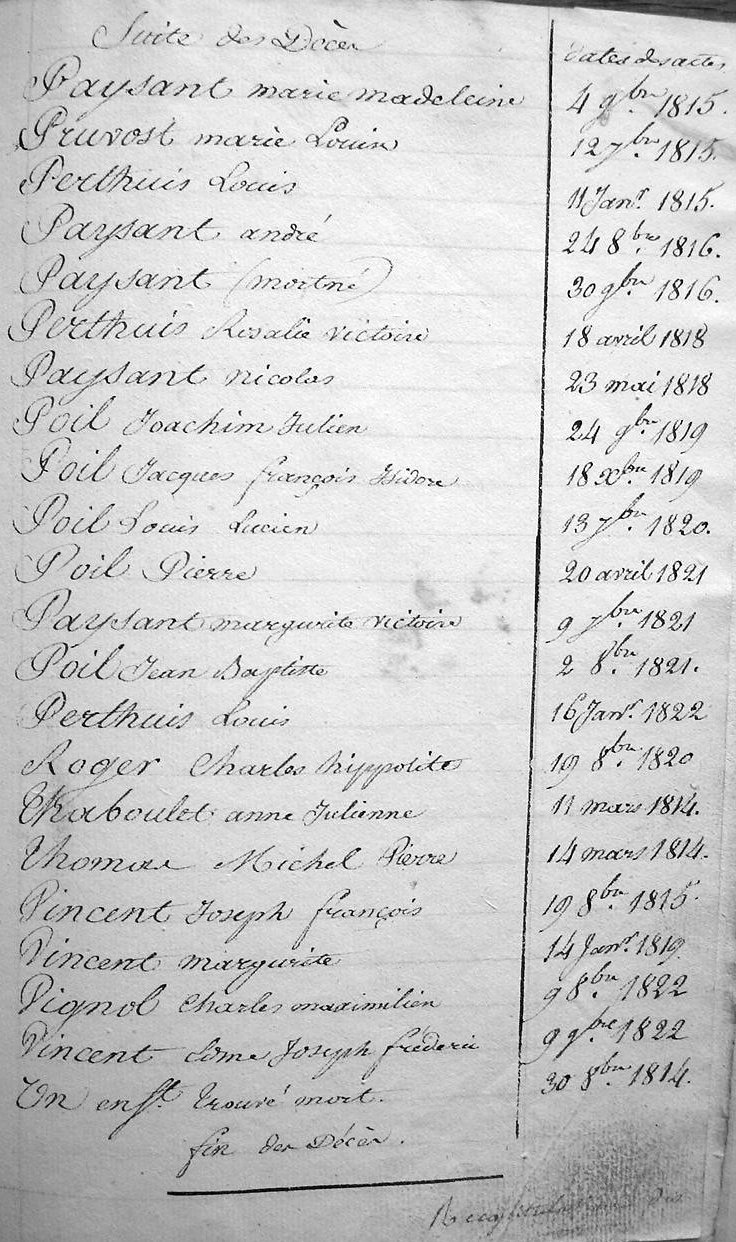 Suite des Décès
Dates des actes
Paysant marie madeleine 4 9bre 1815.
Pruvost marie Louise 12 7bre 1815.
Perthuis Louis 11 Janr. 1815.
Paysant andré 24 8bre 1816.
Paysant (mortné) 30 9bre 1816.
Perthuis Rosalie victoire 18 avril 1818
Paysant nicolas 23 mai 1818
Poil Joachim Julien 24 9bre 1819
Poil Jacques françois Isidore 18 xbre 1819
Poil Louis Lucien 13 7bre 1820.
Poil Pierre 20 avril 1821
Paysant margurite victoire 9 7bre 1821
Poil Jean Baptiste 2 8bre 1821.
Perthuis Louis 16 Janr. 1822
Roger Charles hippolite 19 8bre 1820
Thaboulet anne Julienne 11 mars 1814.
Thomas Michel Pierre 14 mars 1814.
Vincent Joseph françois 19 8bre 1815.
Vincent margurite 14 Janr. 1819
Vignol Charles maximilien 9 8bre 1822
Vincent Côme Joseph fréderic 9 9bre 1822
Un enft. trouvé mort. 30 8bre 1814.
fin des Décès.